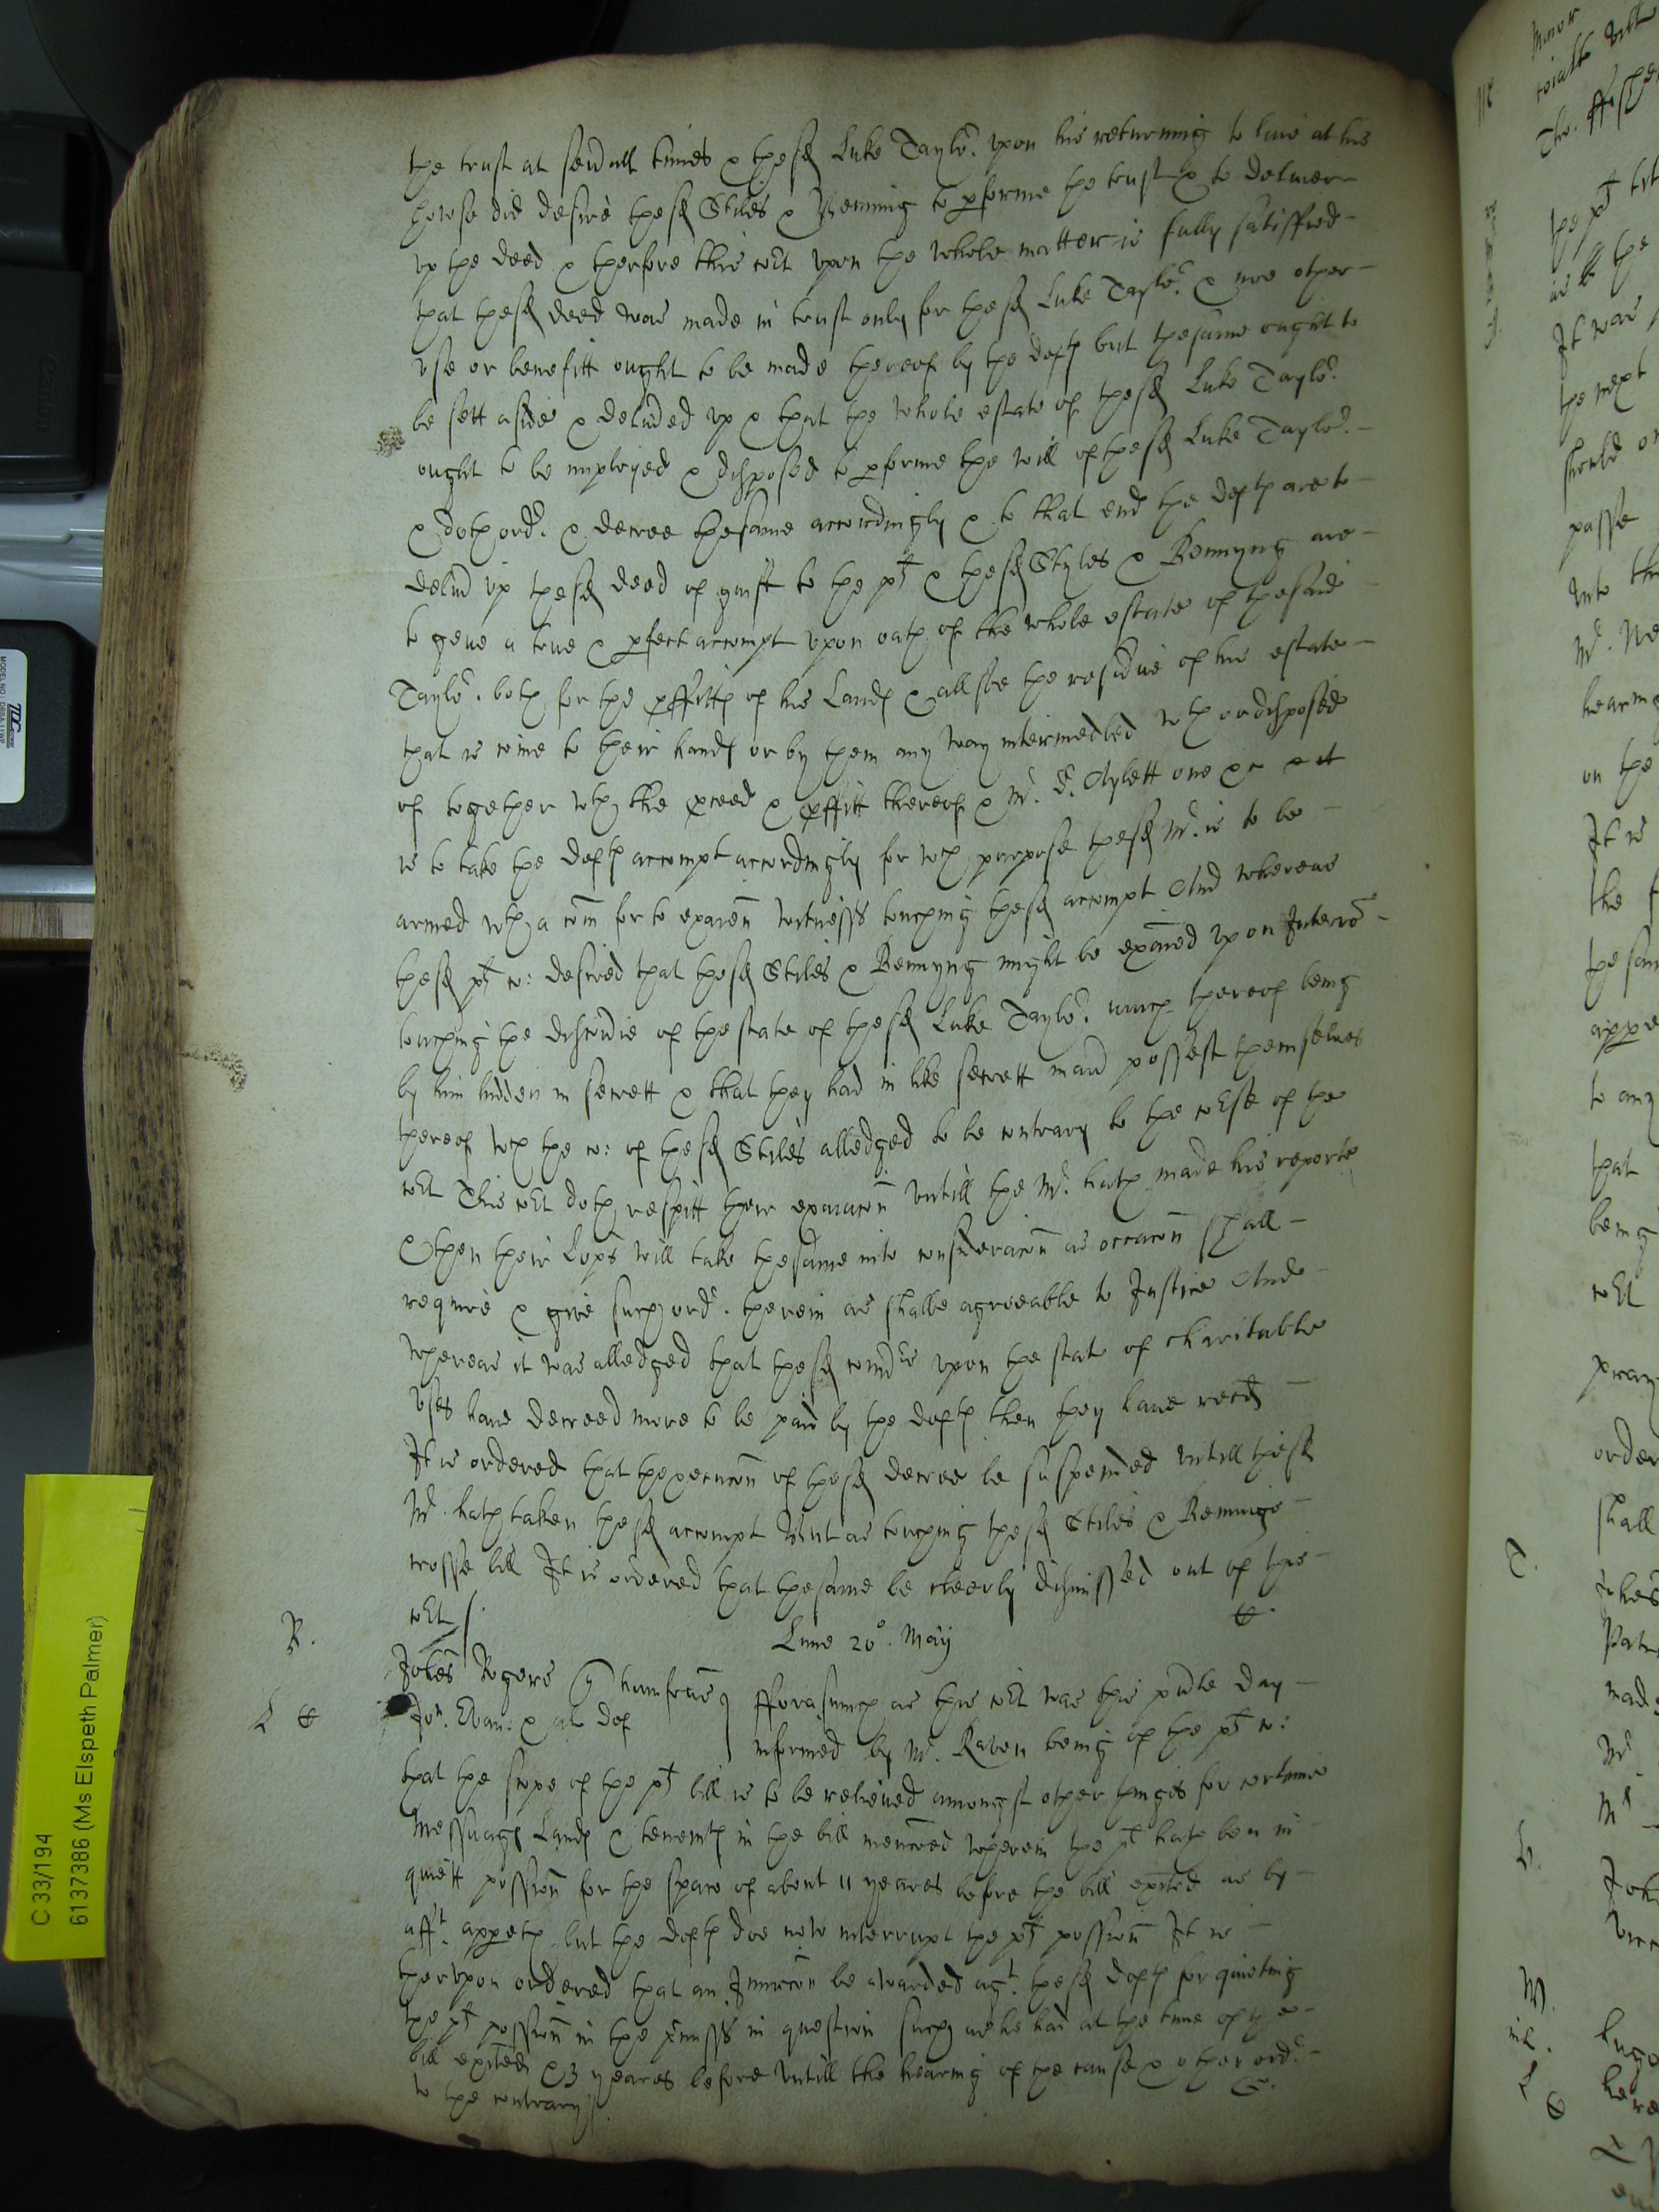 the trust at sevall times & the sd Luke Taylor. upon his returning to live at his
howse did desire the sd Stiles & Benning to pforme the trust & to deliver
up the deed & therfore this Cort upon the whole matter is fully satisfied
that the sd deed was made in trust only for the sd Luke Taylor. & noe other
use or benefitt ought to be made thereof by the defts but thesame ought to
be sett aside & delived up & that the whole estate of the sd Luke Taylor.
ought to be imployed & disposed to pforme the will of the sd Luke Taylor.
& doth ordr. & decree thesame accordingly & to that end the defts are to
delivr up the sd deed of guift to the plt & the sd Styles & Bennyng are
to geve a true & pfect accompt upon oath of the whole estate of thesaid
Taylor. both for the pffitts of his Lands & allsoe the residue of his estate
that is come to their hands or by them any way intermedled wth or disposed
of together wth the pceed & pffitt thereof & Mr. Dr. Aylett one &c
is to take the defts accompt accordingly for wch purpose the sd Mr. is to be
armed wth a Com for to examen witnesses touching the sd accompt And whereas
the sd plt co: desired that the sd Stiles & Bennyng might be exained upon Interro
touching the discovie of the state of the sd Luke Taylor. much thereof being
by him hidden in secrett & that they had in like secrett mann possest themselves
thereof wch the co: of the sd Stiles alledged to be contrary to the course of the
Cort This Cort doth respitt their exaiacon untill the Mr. hath made his reporte
& then their Lops will take thesame into consideracon as occacon shall
require & give such ordr. therein as shalbe agreeable to Justice And
whereas it was alledged that the sd comrs upon the state of charitable
uses have decreed more to be paid by the defts then they have recd
It is ordered that thexecucon of the sd decree be suspended untill the sd
Mr. hath taken the sd accompt But as touching the sd Stiles & Bennings
crosse bill It is ordered that thesame be cleerly dismissed out of this
Cort
R.
Lune 20o. May
Johes Rogers
L
Jon. Evan: & al def
fforasmuch as this Cort was this pnte day
informed by Mr. Raven being of the plt co:
that the scope of the plt bill is to be relieved amongst other things for certaine
Messuags Lands & tenemts in the bill mencoed wherein the plt hath ben in
quiett possion for the space of about 11 yeares before the bill exited as by
afft. appeth but the defts doe now interrupt the plt possion It is
therupon ordered that an Iniuccon be awarded agt. the sd defts for quieting
the plt possion in the pmisss in question such as he had at the time of the
bill exited & 3 yeares before untill the hearing of the cause & other ordr.
to the contrary
C 33/194
6137386 (Ms Elspeth Palmer)